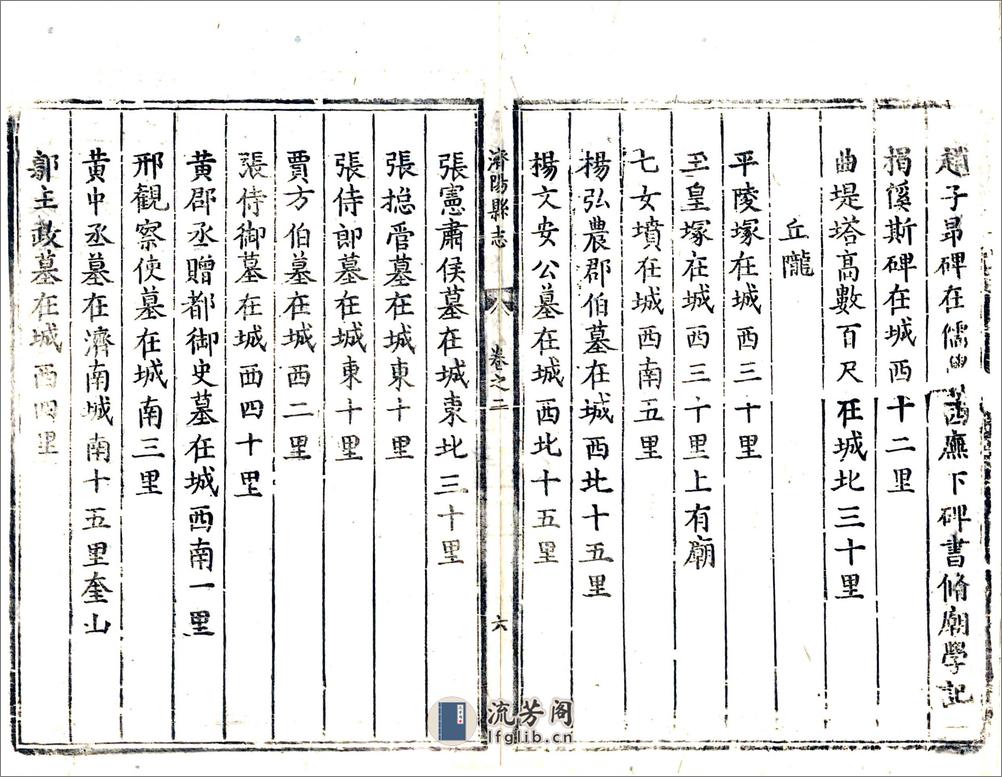 趙子昻碑在儒學西廡下碑書脩廟學記
揭傒斯碑在城西十二里
曲堤塔高數百尺在城北三十里
丘隴
平陵塚在城西三十里
玉皇塚在城西三十里上有廟
七女墳在城西南五里
楊弘農郡伯墓在城西北十五里
楊文安公墓在城西北十五里
濟陽縣志 卷之二 六
張憲肅侯墓在城東北三十里
張揔管墓在城東十里
張侍郎墓在城東十里
賈方伯墓在城西二里
張侍御墓在城西四十里
黃郡丞贈都御史墓在城西南一里
邢觀察使墓在城南三里
黃中丞墓在濟南城南十五里奎山
郭主政墓在城西四里
流芳阁
lfglib.cn